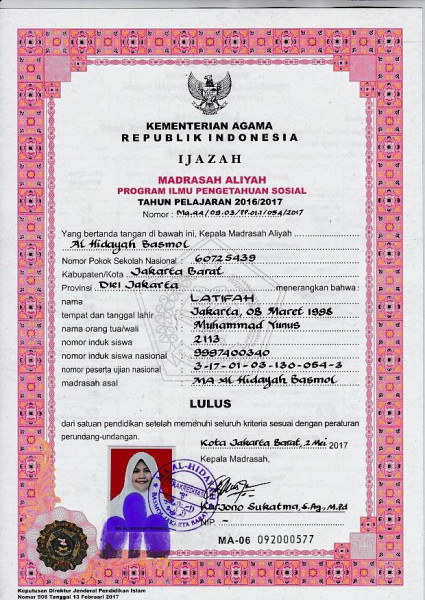 KEMENTERIAN AGAMA
REPUBLIK INDONESIA
IJAZAH
MADRASAH ALIYAH
PROGRAM ILMU PENGETAHUAN SOSIAL
TAHUN PELAJARAN 2016/2017
Nomor : Ma.44/09.03/PP.01.1/054/2017
Yang bertanda tangan di bawah ini, Kepala Madrasah Aliyah
Al Hidayah Basmol
Nomor Pokok Sekolah Nasional : 60725439
Kabupaten/Kota Jakarta Barat
Provinsi DKI Jakarta menerangkan bahwa :
nama LATIFAH
tempat dan tanggal lahir Jakarta, 08 Maret 1998
nama orang tua/wali Muhammad Yunus
nomor induk siswa 2113
nomor induk siswa nasional 9997400340
nomor peserta ujian nasional 3-17-01-03-130-054-3
madrasah asal MA Al Hidayah Basmol
LULUS
dari satuan pendidikan setelah memenuhi seluruh kriteria sesuai dengan peraturan
perundang-undangan.
Kota Jakarta Barat, 2 Mei 2017
Kepala Madrasah,
Karjono Sukatma, S.Ag., M.Pd
NIP. -
MA-06 092000577
Keputusan Direktur Jenderal Pendidikan Islam
Nomor 906 Tanggal 13 Februari 2017